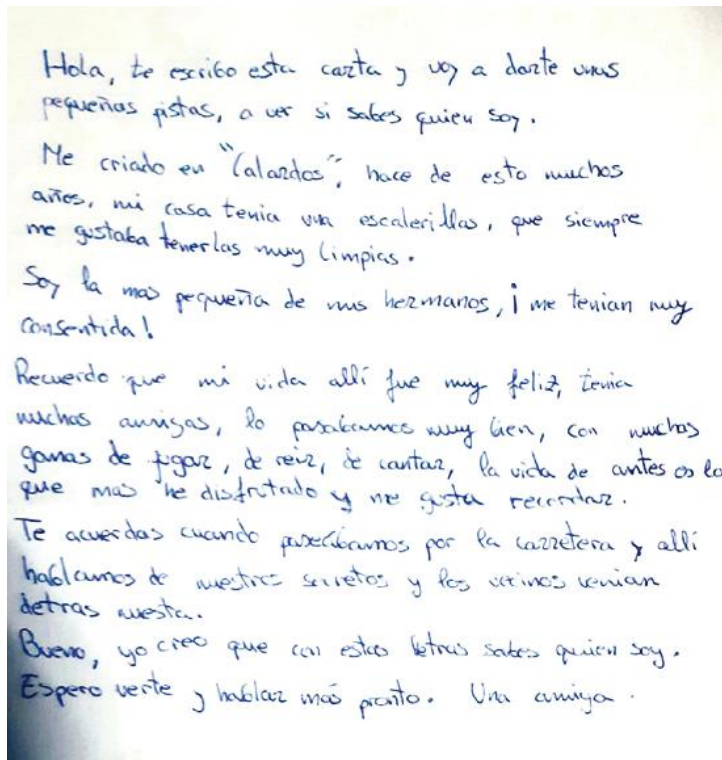 Hola, te escribo esta carta y voy a darte unas
pequeñas pistas, a ver si sabes quien soy.
Me criado en "Calardos", hace de esto muchos
años, mi casa tenia una escalerillas, que siempre
me gustaba tenerlas muy limpias.
Soy la mas pequeña de mis hermanos, ¡me tenian muy
consentida!
Recuerdo que mi vida allí fue muy feliz, tenia
muchas amigas, lo pasabamos muy bien, con muchas
ganas de jugar, de reir, de cantar, la vida de antes es lo
que mas he disfrutado y me gusta recordar.
Te acuerdas cuando paseabamos por la carretera y allí
hablamos de nuestros secretos y los vecinos venian
detras nuesta.
Bueno, yo creo que con estas letras sabes quien soy.
Espero verte y hablar más pronto. Una amiga.